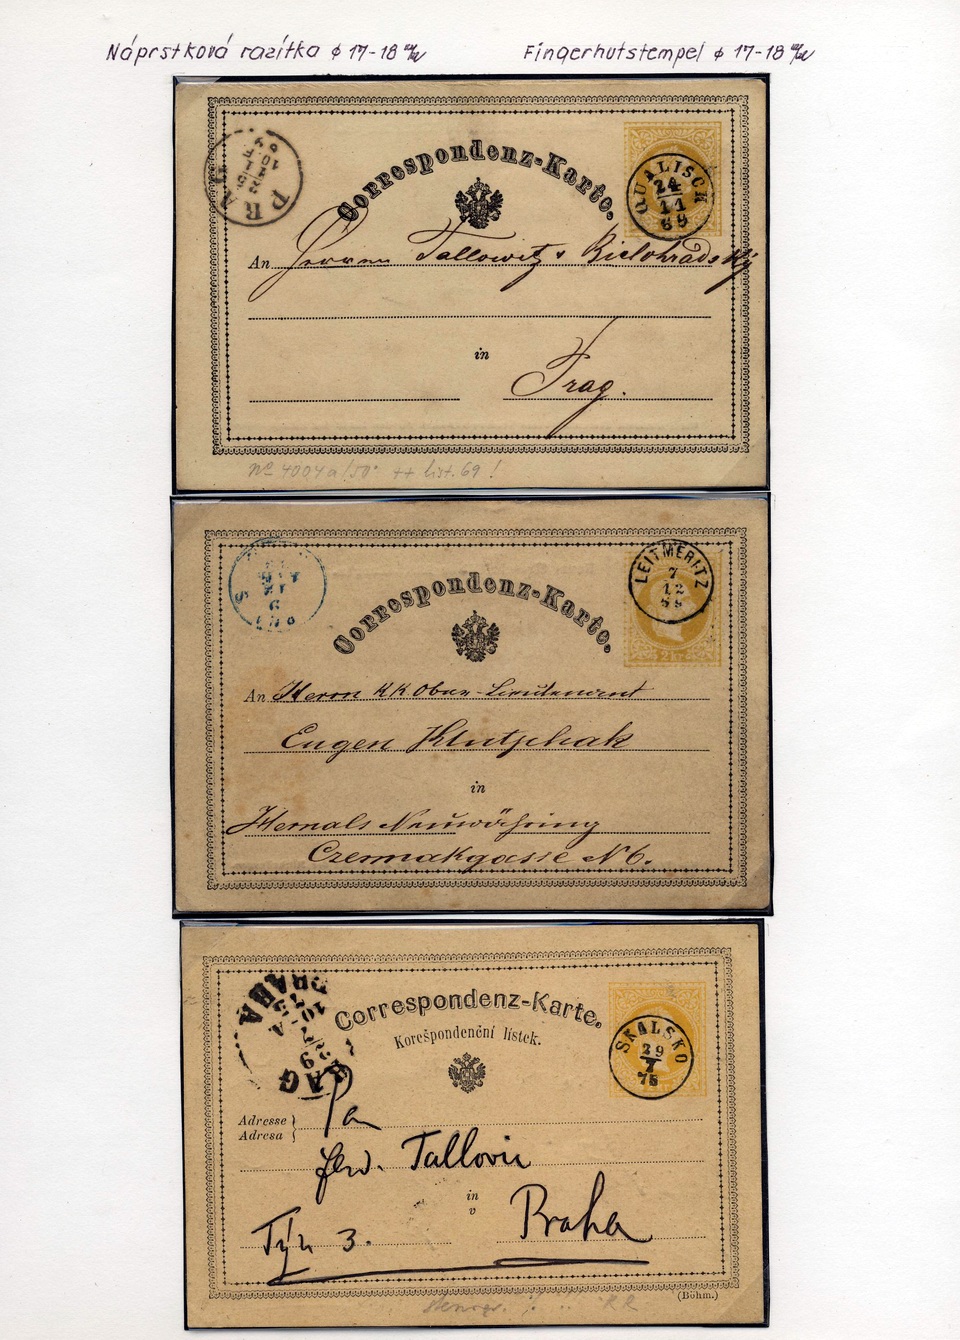 Náprstková razítka ϕ 17-18 m/m
Fingerhutstempel ϕ 17-18 m/m
PRAG
69
Correspondenz-Karte.
QUALISCH
24
11
69
An Herren Tallowitz & Bielohradský
in
Prag.
No 4004a/50° ++ list. 69 !
Correspondenz-Karte.
LEITMERITZ
7
12
69
2 kr
An Herrn KK Ober-Lieutenant
Eugen Klutschak
in
Hernals Neuwähring
Czermakgasse N 6.
PRAHA
PRAG
29
7
75
Correspondenz-Karte.
Korešpondenční lístek.
SKALSKO
29
7
75
Adresse
Adresa
Pan
Ferd. Tallowic
in
v
Praha
Týn 3.
(Böhm.)